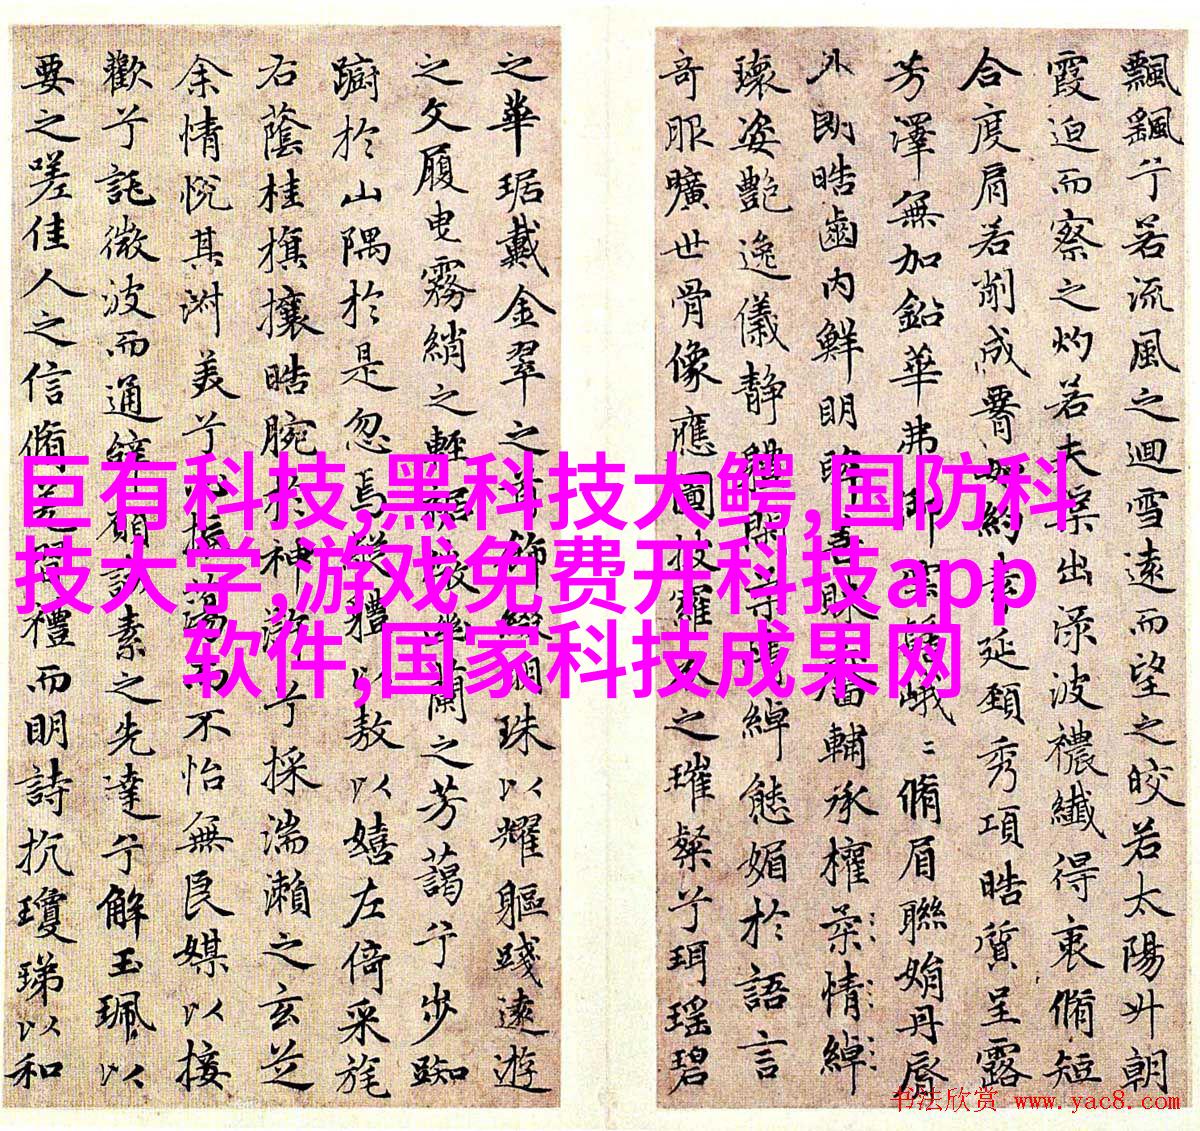 飄飖兮若流風之迴雪遠而望之皎若太陽升朝
霞迫而察之灼若夫蕖出淥波襛纖得衷脩短
合度肩若削成腰如約素延頚秀項皓質呈露
芳澤無加鉛華弗御雲髻峨〻脩眉聯娟丹脣
外朗皓齒内鮮明眸善睞靨輔承權柔情綽
瓌姿艷逸儀静軆閑柔情綽態媚於語言
奇服曠世骨像應圖披羅衣之璀粲兮珥瑶碧
之華琚戴金翠之首飾綴明珠以耀軀踐遠遊
之文履曳霧綃之輕裾微幽蘭之芳藹兮步踟
蹰於山隅於是忽焉縱體以敖以嬉左倚采旄
右蔭桂旗攘皓腕於神滸兮採湍瀨之玄芝
余情悅其淑美兮心振蕩而不怡無良媒以接
歡兮託微波而通辭願誠素之先達兮解玉珮以
要之嗟佳人之信脩羌習禮而明詩抗瓊珶以和
巨有科技,黑科技大鳄,国防科
技大学,游戏免费开科技app
软件,国家科技成果网
书法欣赏 www.yac8.com